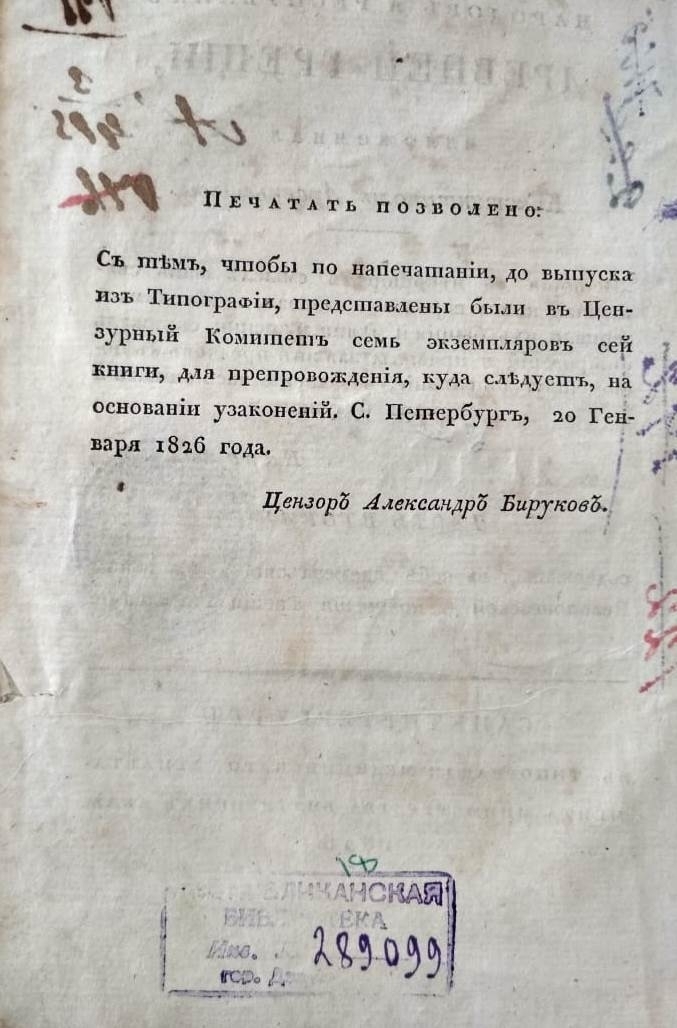 Печатать позволено:
Съ тѣмъ, чтобы по напечатаніи, до выпуска
изъ Типографіи, представлены были въ Цен-
зурный Комитетъ семь экземпляровъ сей
книги, для препровожденія, куда слѣдуетъ, на
основаніи узаконеній. С. Петербургъ, 20 Ген-
варя 1826 года.
Цензоръ Александръ Бируковъ.
18
289099
гор.